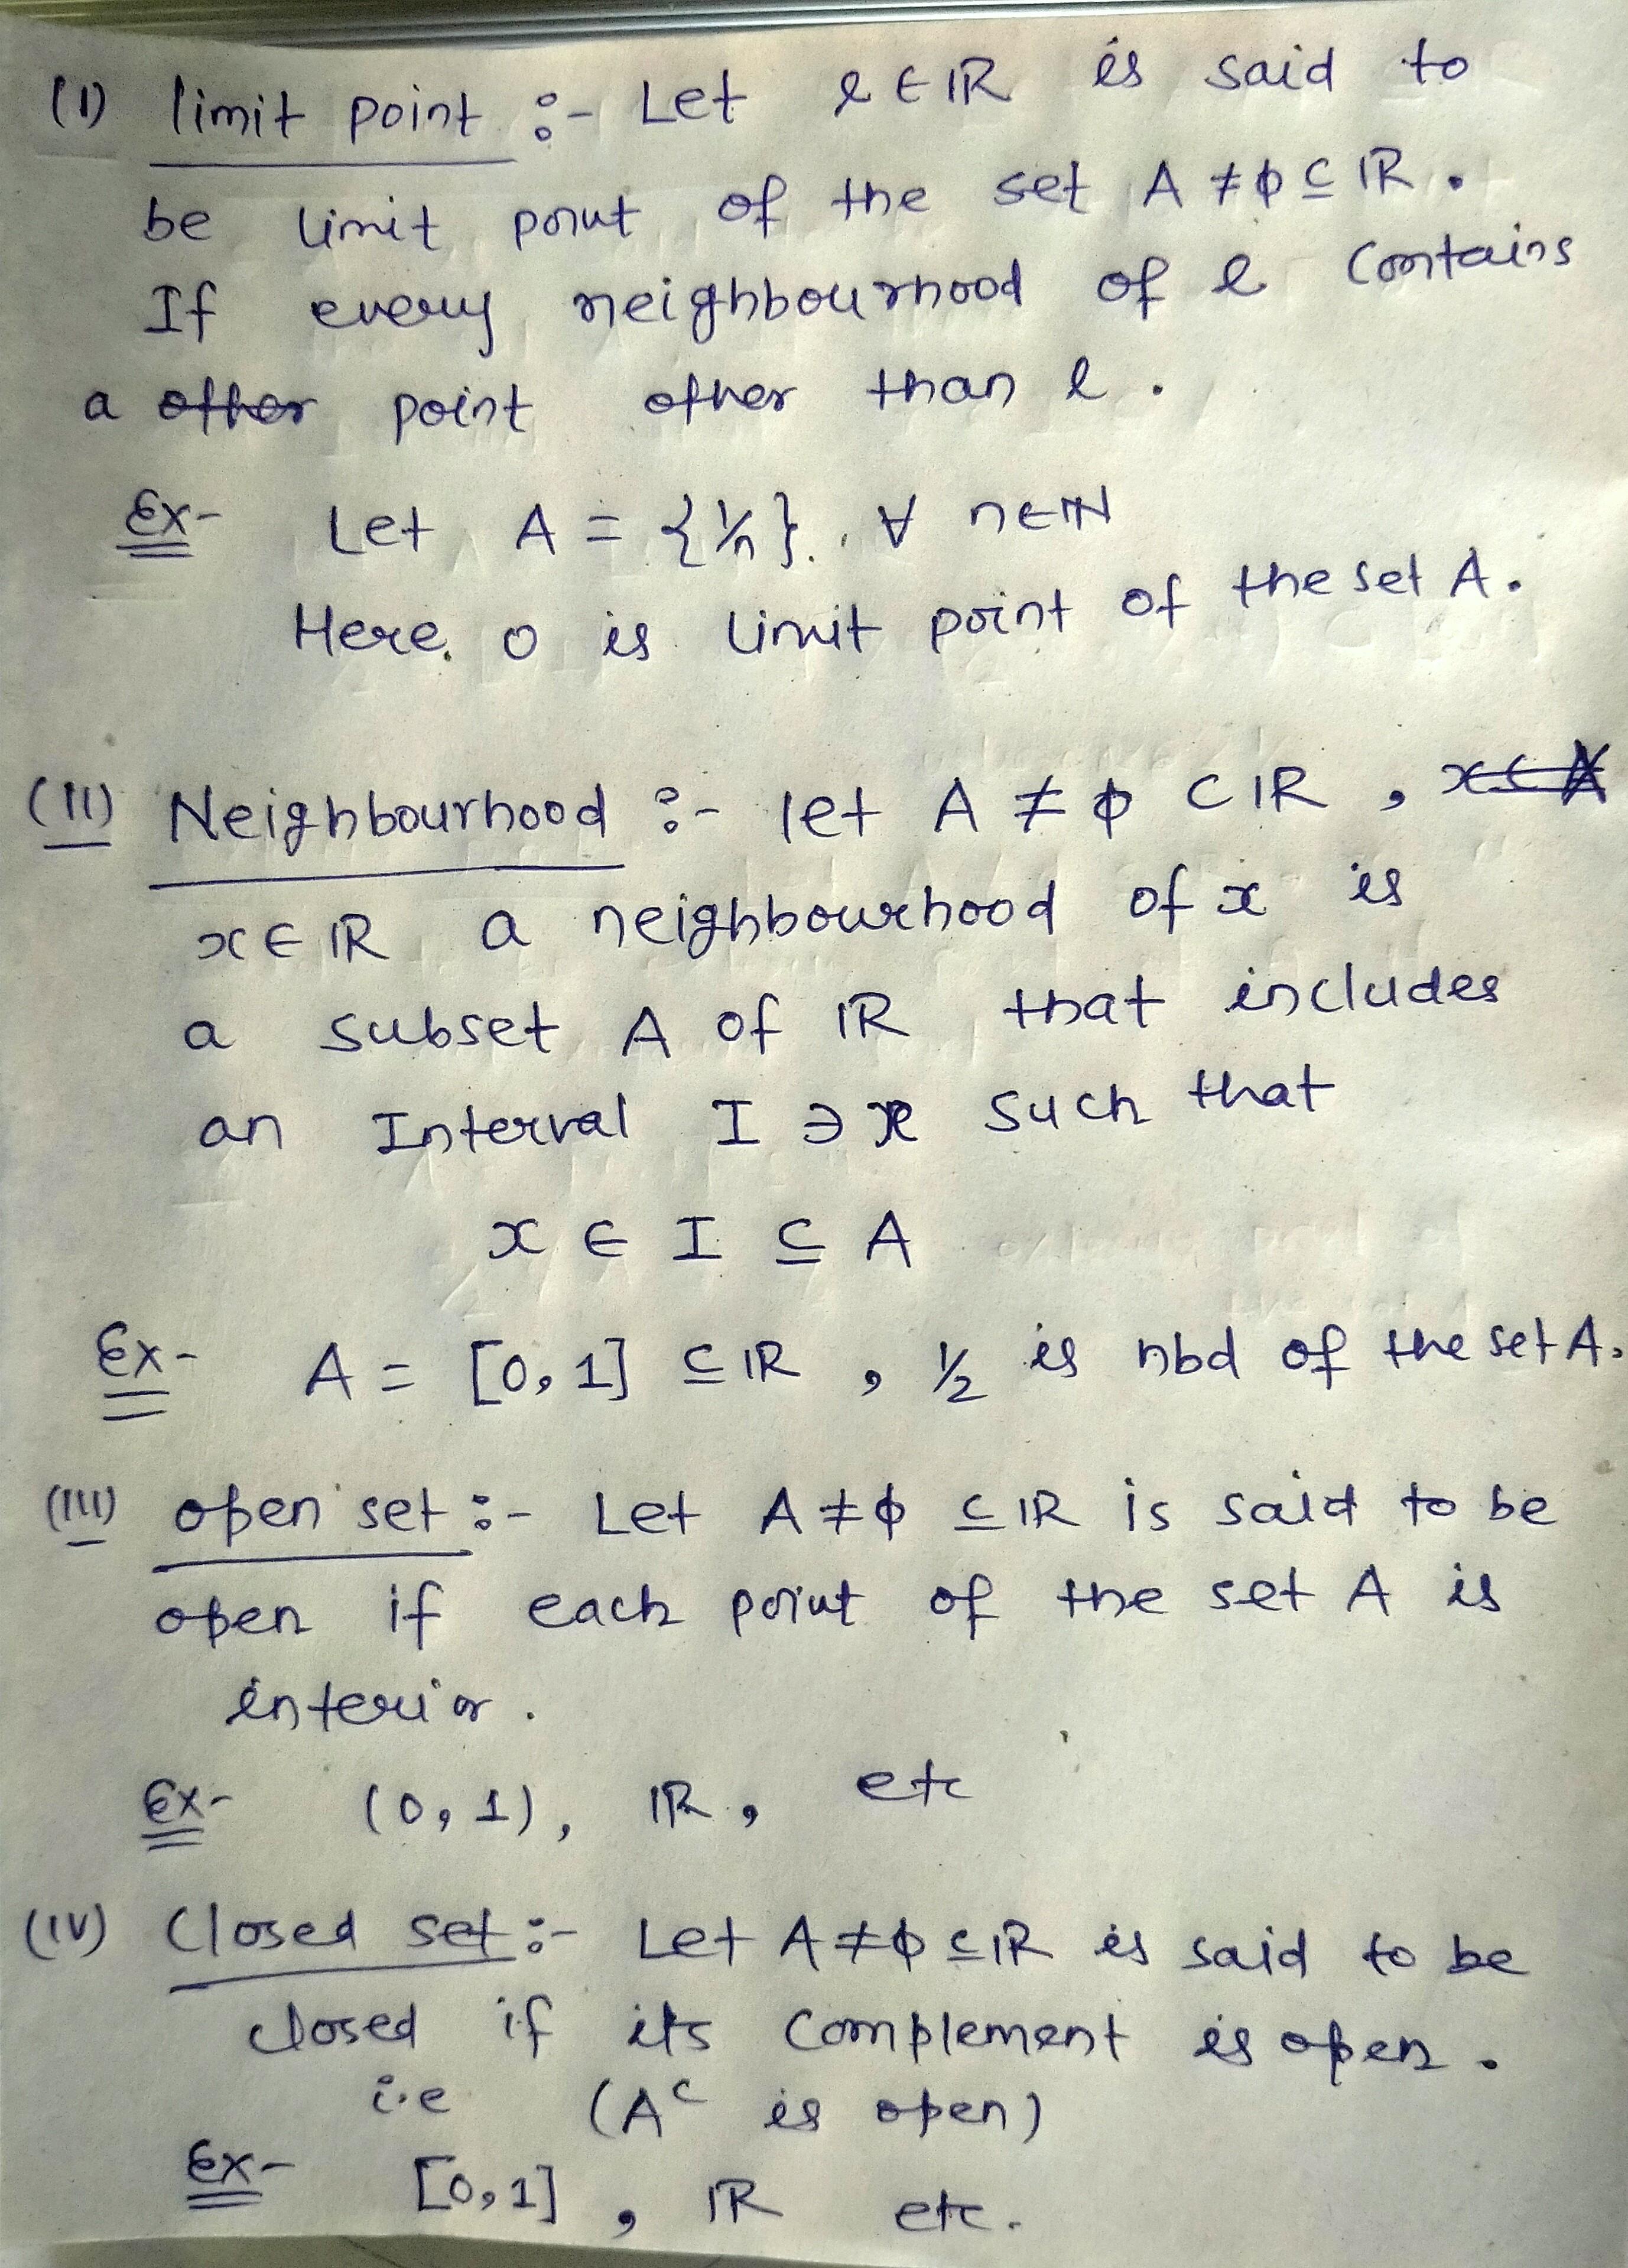 (I) limit point :- Let l ∈ IR is said to
be limit point of the set A ≠ ϕ ⊆ IR .
If every neighbourhood of l contains
a other point other than l .
Ex- Let A = {1/n}. ∀ n∈IN
Here, 0 is limit point of the set A.
(II) Neighbourhood :- let A ≠ ϕ ⊂ IR ,
x ∈ IR a neighbourhood of x is
a subset A of IR that includes
an Interval I ∋ x such that
x ∈ I ⊆ A
Ex- A = [0, 1] ⊆ IR , 1/2 is nbd of the set A.
(III) open set :- Let A ≠ ϕ ⊆ IR is said to be
open if each point of the set A is
interior .
Ex- (0, 1), IR , etc
(IV) Closed set :- Let A ≠ ϕ ⊆ IR is said to be
closed if its complement is open .
i.e (Aᶜ is open)
Ex- [0,1] , IR etc.